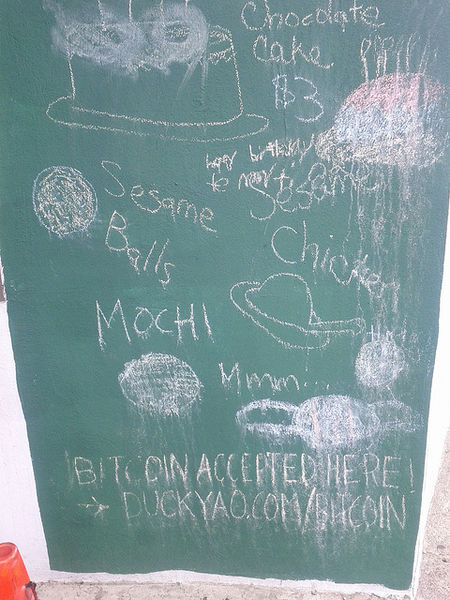 Chocolate
Cake
$3
birthday
to
Sesame
Chicken
Sesame
Balls
MOCHI
Mmm...
BITCOIN ACCEPTED HERE!
→ DUCKYAO.COM/BITCOIN